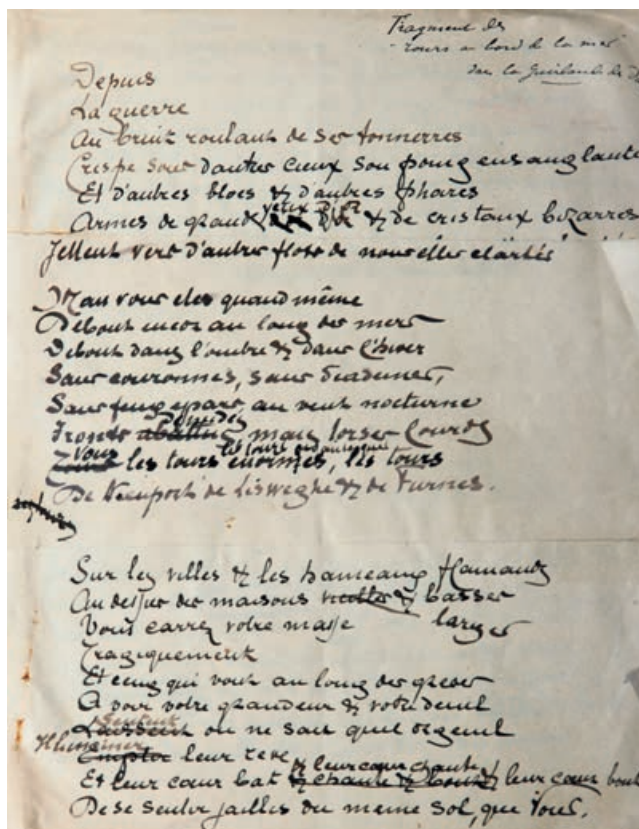 Fragment des
"Tours au bord de la mer"
dans la Guirlande de D
Depuis
La guerre
Au bruit roulant de ses tonnerres
Crispe sous d'autres cieux son poing ensanglanté
Et d'autres blocs & d'autres phares
Armés de grands yeux d'or & de cristaux bizarres
Jettent vers d'autres flots de nouvelles clartés
Mais vous êtes quand même
Debout encor au long des mers
Debout dans l'ombre & dans l'hiver
Sans couronnes, sans diadèmes,
Sans feux épars au vent nocturne
Fronts abattus, mais torses lourds
Vous les tours énormes, les tours
De Nieuport de Lisweghe & de Furnes.
Sur les villes & les hameaux flamands
Au dessus des maisons vieilles & basses
Vous carrez votre masse larges
Tragiquement
Et ceux qui vont au long des grèves
A voir votre grandeur & votre deuil
Sentent
Laissent on ne sait quel orgueil
Illuminer
Emplir leur rêve
& leur cœur chante
Et leur cœur bat & chante & bout & leur cœur bout
De se sentir jaillis du même sol, que Vous.